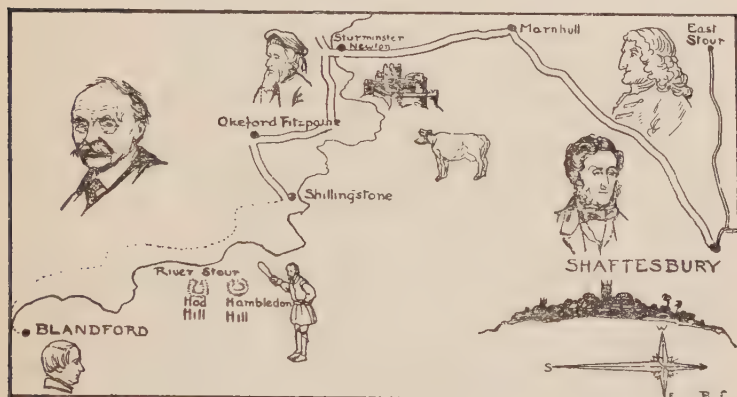 Sturminster
Newton
Marnhull
East
Stour
Okeford Fitzpaine
Shillingstone
SHAFTESBURY
River Stour
Hod
Hill
Hambledon
Hill
BLANDFORD
W
S
E